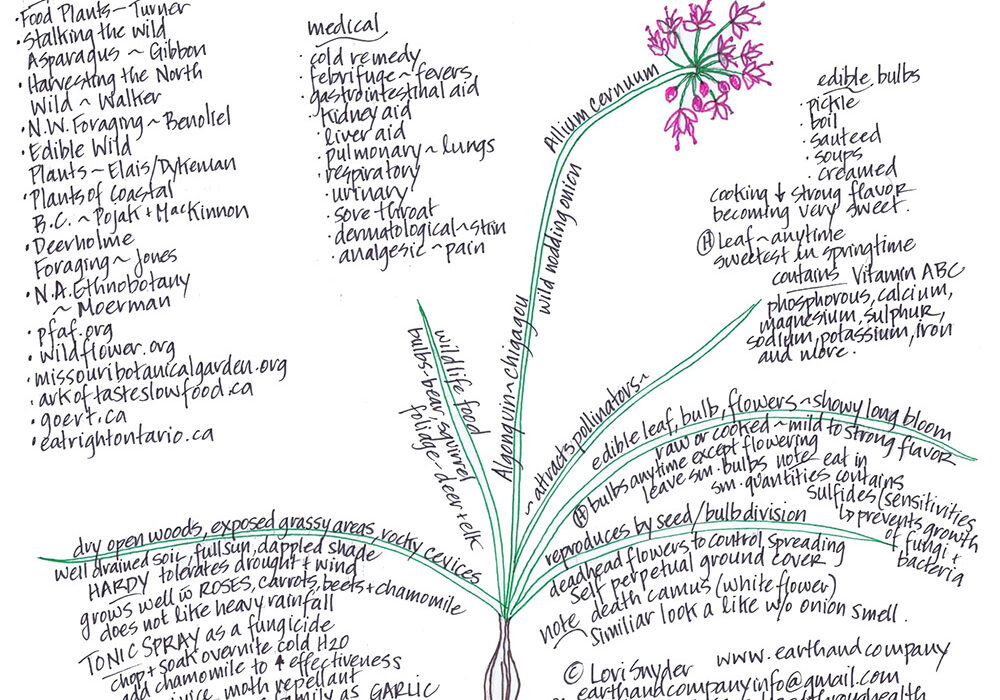 ·Food Plants~Turner
·Stalking the Wild
Asparagus ~ Gibbon
·Harvesting the North
Wild ~ Walker
·N.W. Foraging ~ Benoliel
·Edible Wild
Plants ~ Elais/Dykeman
·Plants of Coastal
B.C. ~ Pojak + MacKinnon
·Deerholme
Foraging ~ Jones
·N.A. Ethnobotany
~ Moerman
·pfaf.org
·wildflower.org
·missouribotanicalgarden.org
·arkoftasteslowfood.ca
·goert.ca
·eatrightontario.ca
medical
·cold remedy
·febrifuge ~ fevers
·gastrointestinal aid
·kidney aid
·liver aid
·pulmonary ~ lungs
·respiratory
·urinary
·sore throat
·dermatological ~ skin
·analgesic ~ pain
Allium cernuum
wild nodding onion
Algonquin ~ chigagou
edible bulbs
·pickle
·boil
·sauteed
·soups
·creamed
cooking ↓ strong flavor
becoming very sweet.
Ⓗ Leaf ~ anytime
sweetest in springtime
contains Vitamin ABC
phosphorous, calcium,
magnesium, sulphur,
sodium, potassium, iron
and more.
wildlife food
bulbs-bear-squirrel
foliage-deer+elk
~attracts pollinators~
edible leaf, bulb, flowers ~ showy long bloom
raw or cooked ~ mild to strong flavor
Ⓗ bulbs anytime except flowering
leave sm. bulbs note eat in
sm. quantities contains
sulfides (sensitivities
↳ prevents growth
of fungi +
bacteria
reproduces by seed/bulb division
deadhead flowers to control spreading
self perpetual ground cover
note death camus (white flower)
similiar look a like w/o onion smell.
dry open woods, exposed grassy areas, rocky cevices
well drained soil, full sun, dappled shade
HARDY tolerates drought + wind
grows well w̄ ROSES, carrots, beets + chamomile
does not like heavy rainfall
TONIC SPRAY as a fungicide
chop + soak overnite cold H2O
add chamomile to ↑ effectiveness
juice moth repellant
family as GARLIC
© Lori Snyder www.earthandcompany
earthandcompanyinfo@gmail.com